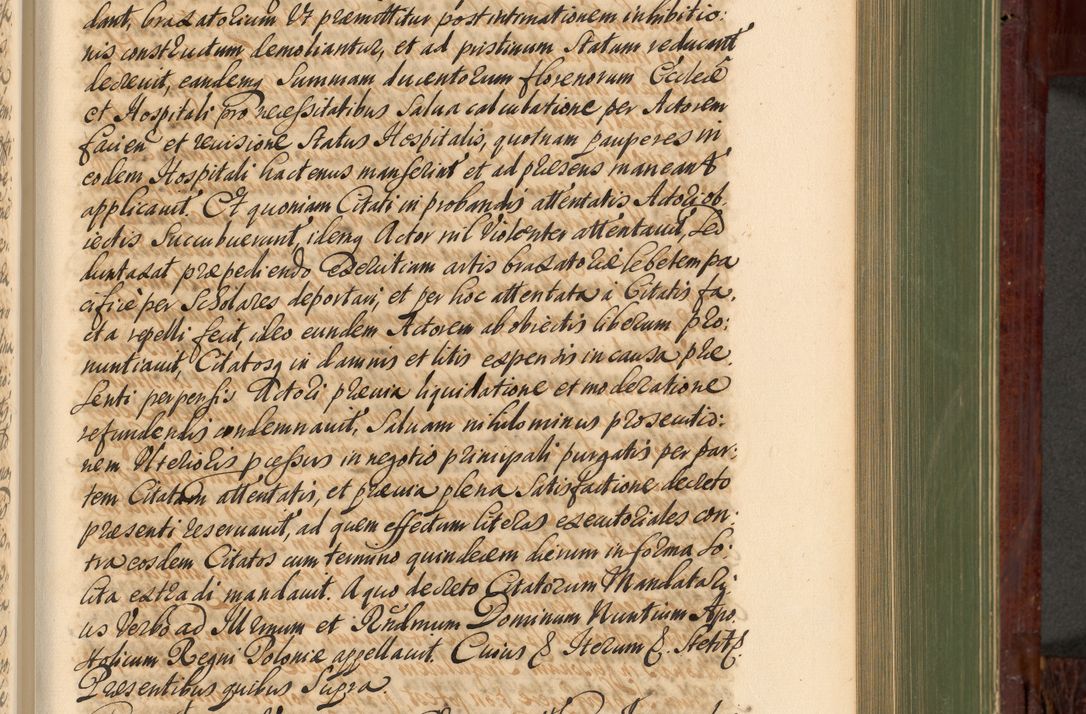 dant, braxatorium Vt præmittitur post intimationem inhibitio:
nis constructum demoliantur, et ad pristinum Statum reducant
decreuit, eandemq Summam ducentorum florenorum Eccleæ
et Hospitali pro necessitatibus Salua calculatione per Actorem
facien et reuisione Status Hospitalis, quotnam pauperes in
eodem Hospitali hactenus manserint et ad præsens maneant
applicauit. Et quoniam Citati in probandis attentatis Actori ob,
iectis Succubuerunt, idemq Actor nil Violenter attentauit, Sed
duntaxat præpediendo Exercitium artis braxatoriæ lebetem pa
cificè per Scholares deportari, et per hoc attentata à Citatis fa,
cta repelli fecit, ideo eundem Actorem ab obiectis liberum pro:
nuntiauit, Citatosq in damnis et litis expensis in causa præ
senti perpessis Actori præuia liquidatione et moderatione
refundendis condemnauit, Saluam nihilominus prosecutio:
nem Vlterioris processus in negotio principali purgatis per par,
tem Citatam attentatis, et præuia plena Satisfactione decreto
præsenti reseruauit, ad quem effectum literas executoriales con:
tra eosdem Citatos cum termino quindecem dierum in forma So:
lita extradi mandauit. A quo decreto Citatorum Mandatari,
us Verbo ad Illrmum et Rndmum Dominum Nuntium Apo,
stolicum Regni Poloniæ appellauit. Cuius & Iterum &. Stetit &.
Præsentibus quibus Supra.